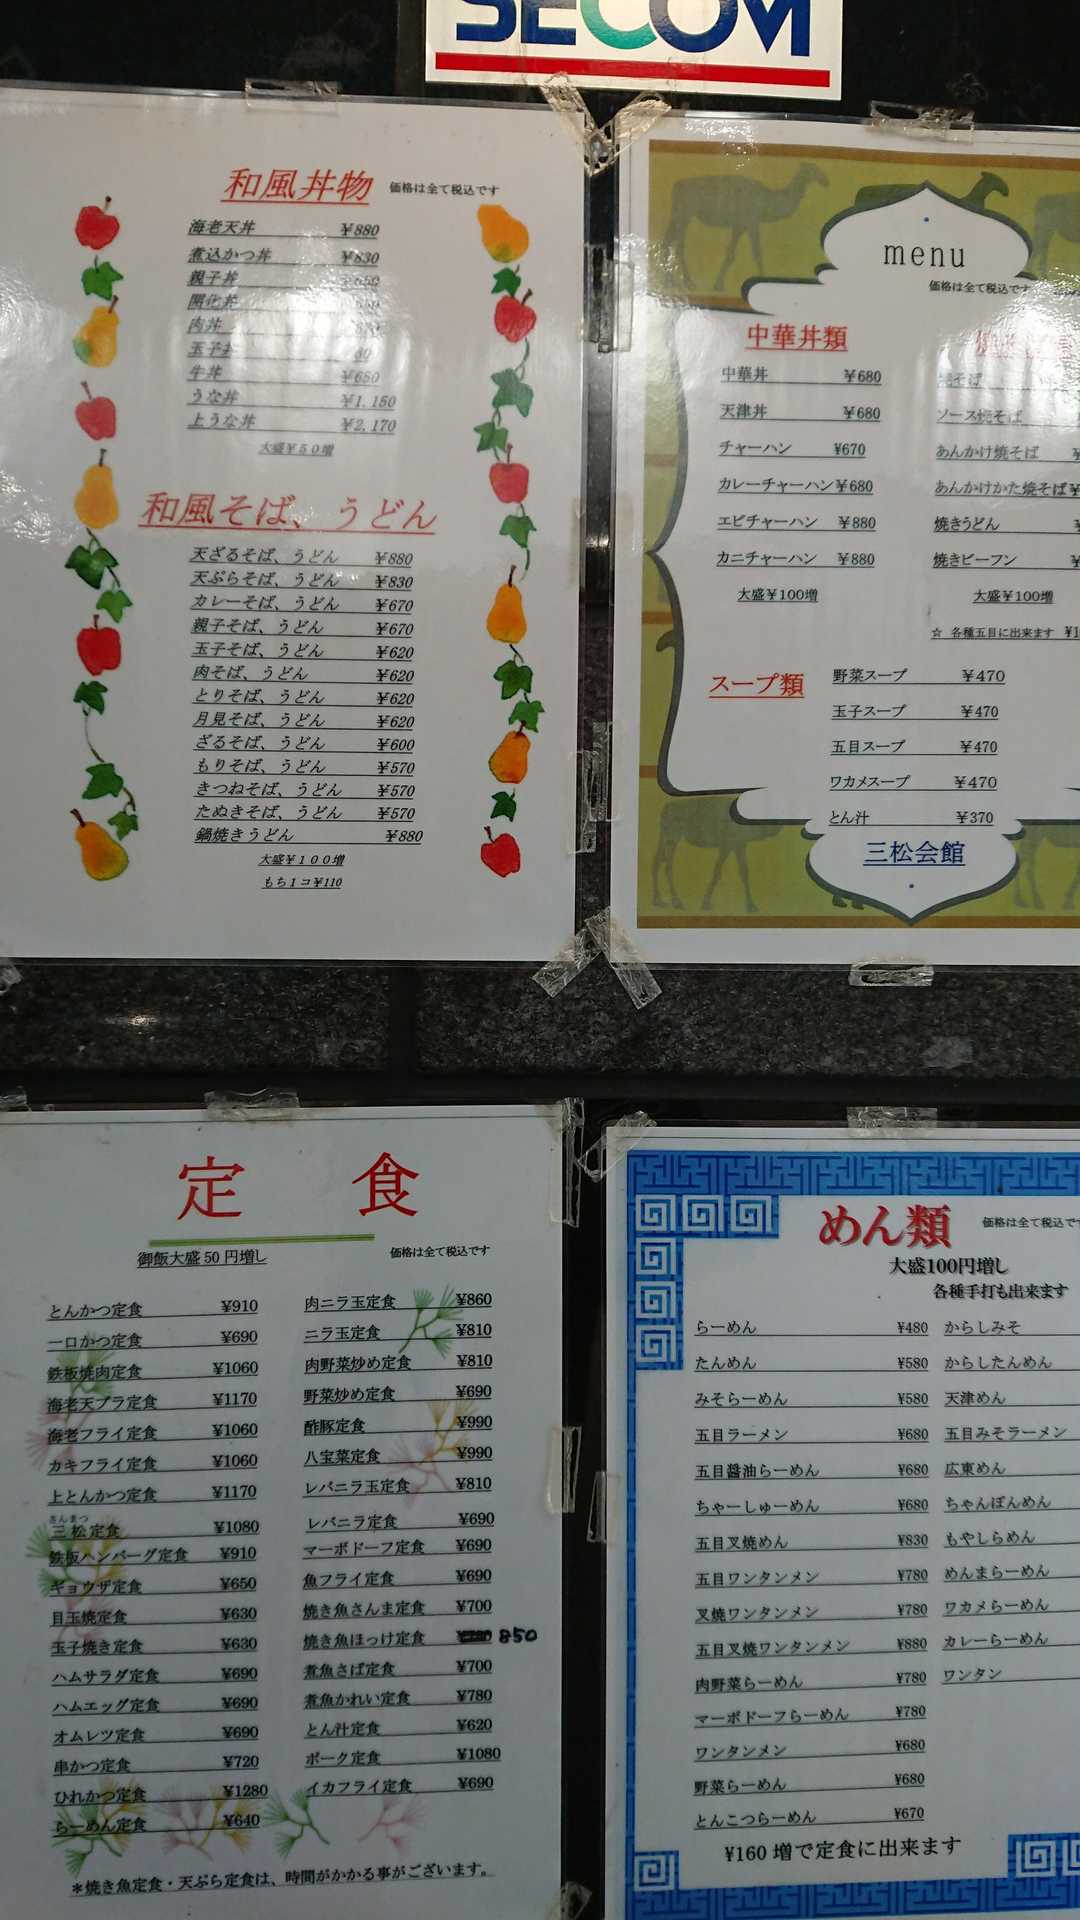 SECOM
和風丼物 価格は全て税込です
海老天丼 ¥880
煮込かつ丼 ¥830
親子丼 ¥650
開化丼
肉丼
玉子丼
牛丼 ¥650
うな丼 ¥1,150
上うな丼 ¥2,170
大盛¥50増
和風そば、うどん
天ざるそば、うどん ¥880
天ぷらそば、うどん ¥830
カレーそば、うどん ¥670
親子そば、うどん ¥670
玉子そば、うどん ¥620
肉そば、うどん ¥620
とりそば、うどん ¥620
月見そば、うどん ¥620
ざるそば、うどん ¥600
もりそば、うどん ¥570
きつねそば、うどん ¥570
たぬきそば、うどん ¥570
鍋焼きうどん ¥880
大盛¥100増
もち1コ¥110
menu
価格は全て税込です
中華丼類
中華丼 ¥680
天津丼 ¥680
チャーハン ¥670
カレーチャーハン ¥680
エビチャーハン ¥880
カニチャーハン ¥880
大盛¥100増
焼そば
ソース焼そば
あんかけ焼そば ¥
あんかけかた焼そば ¥
焼きうどん ¥
焼きビーフン ¥
大盛¥100増
☆ 各種五目に出来ます ¥1
スープ類
野菜スープ ¥470
玉子スープ ¥470
五目スープ ¥470
ワカメスープ ¥470
とん汁 ¥370
三松会館
定食
御飯大盛50円増し 価格は全て税込です
とんかつ定食 ¥910
一口かつ定食 ¥690
鉄板焼肉定食 ¥1060
海老天プラ定食 ¥1170
海老フライ定食 ¥1060
カキフライ定食 ¥1060
上とんかつ定食 ¥1170
さんまつ
三松定食 ¥1080
鉄板ハンバーグ定食 ¥910
ギョウザ定食 ¥650
目玉焼定食 ¥630
玉子焼き定食 ¥630
ハムサラダ定食 ¥690
ハムエッグ定食 ¥690
オムレツ定食 ¥690
串かつ定食 ¥720
ひれかつ定食 ¥1280
らーめん定食 ¥640
肉ニラ玉定食 ¥860
ニラ玉定食 ¥810
肉野菜炒め定食 ¥810
野菜炒め定食 ¥690
酢豚定食 ¥990
八宝菜定食 ¥990
レバニラ玉定食 ¥810
レバニラ定食 ¥690
マーボドーフ定食 ¥690
魚フライ定食 ¥690
焼き魚さんま定食 ¥700
焼き魚ほっけ定食 850
煮魚さば定食 ¥700
煮魚かれい定食 ¥780
とん汁定食 ¥620
ポーク定食 ¥1080
イカフライ定食 ¥690
＊焼き魚定食・天ぷら定食は、時間がかかる事がございます。
めん類 価格は全て税込です
大盛100円増し
各種手打も出来ます
らーめん ¥480
たんめん ¥580
みそらーめん ¥580
五目ラーメン ¥680
五目醤油らーめん ¥680
ちゃーしゅーめん ¥680
五目叉焼めん ¥830
五目ワンタンメン ¥780
叉焼ワンタンメン ¥780
五目叉焼ワンタンメン ¥880
肉野菜らーめん ¥780
マーボドーフらーめん ¥780
ワンタンメン ¥680
野菜らーめん ¥680
とんこつらーめん ¥670
からしみそ
からしたんめん
天津めん
五目みそラーメン
広東めん
ちゃんぽんめん
もやしらめん
めんまらーめん
ワカメらーめん
カレーらーめん
ワンタン
¥160 増で定食に出来ます